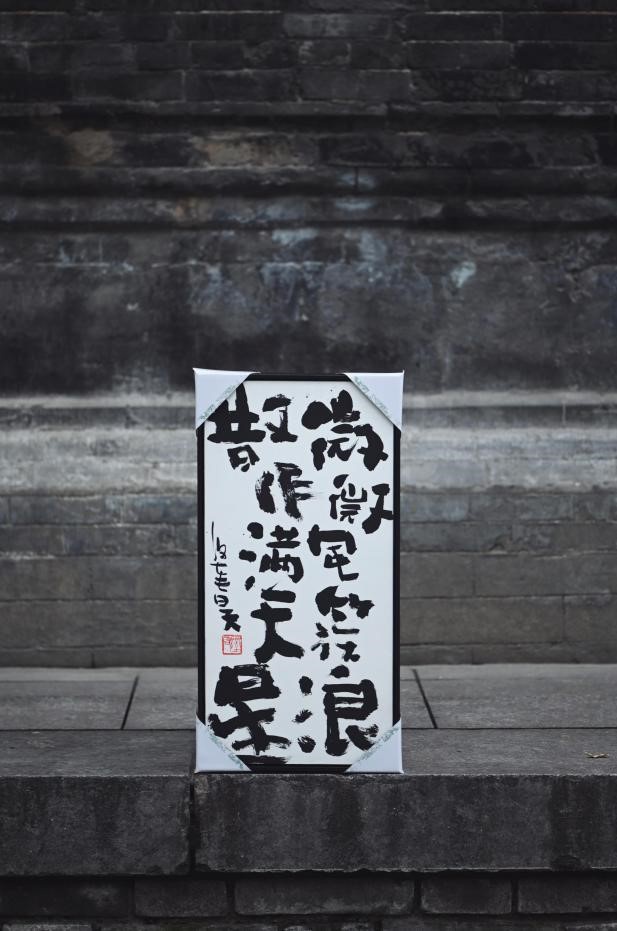 微微風簇浪
散作满天星